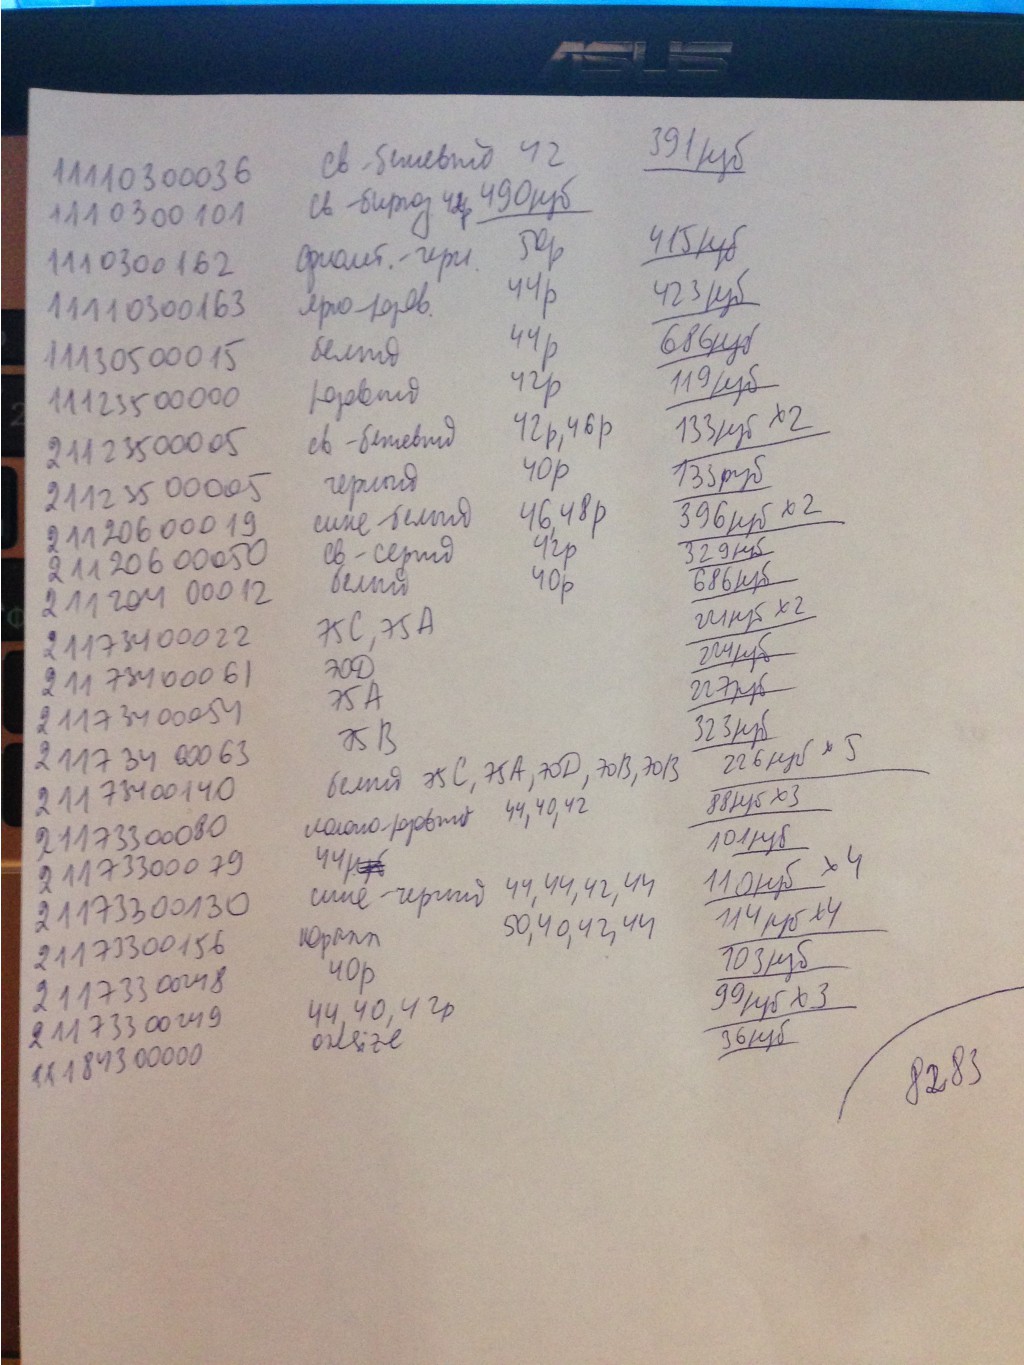 ASUS
11110300036 св-бежевый 42 391руб
1110300101 св-бирюз 42р 490руб
1110300162 фиолет.-черн. 50р 415руб
11110300163 ярко-розов. 44р 423руб
11130500015 белый 44р 686руб
11123500000 розовый 42р 119руб
21123500005 св-бежевый 42р,46р 133руб x2
21123500005 черный 40р 133руб
21120600019 сине-белый 46,48р 396руб x2
21120600050 св-серый 42р 329руб
21120400012 белый 40р 686руб
21173400022 75C,75A 224руб x2
21173400061 70D 224руб
21173400054 75A 227руб
21173400063 75B 323руб
21173400140 белый 75C,75A,70D,70B,70B 226руб x5
21173300080 молочно-розовый 44,40,42 88руб x3
21173300079 44р 101руб
21173300130 сине-черный 44,44,42,44 110руб x4
21173300156 50,40,42,44 114руб x4
21173300248 40р 103руб
21173300249 44,40,42р 99руб x3
11184300000 onesize 36руб
8283